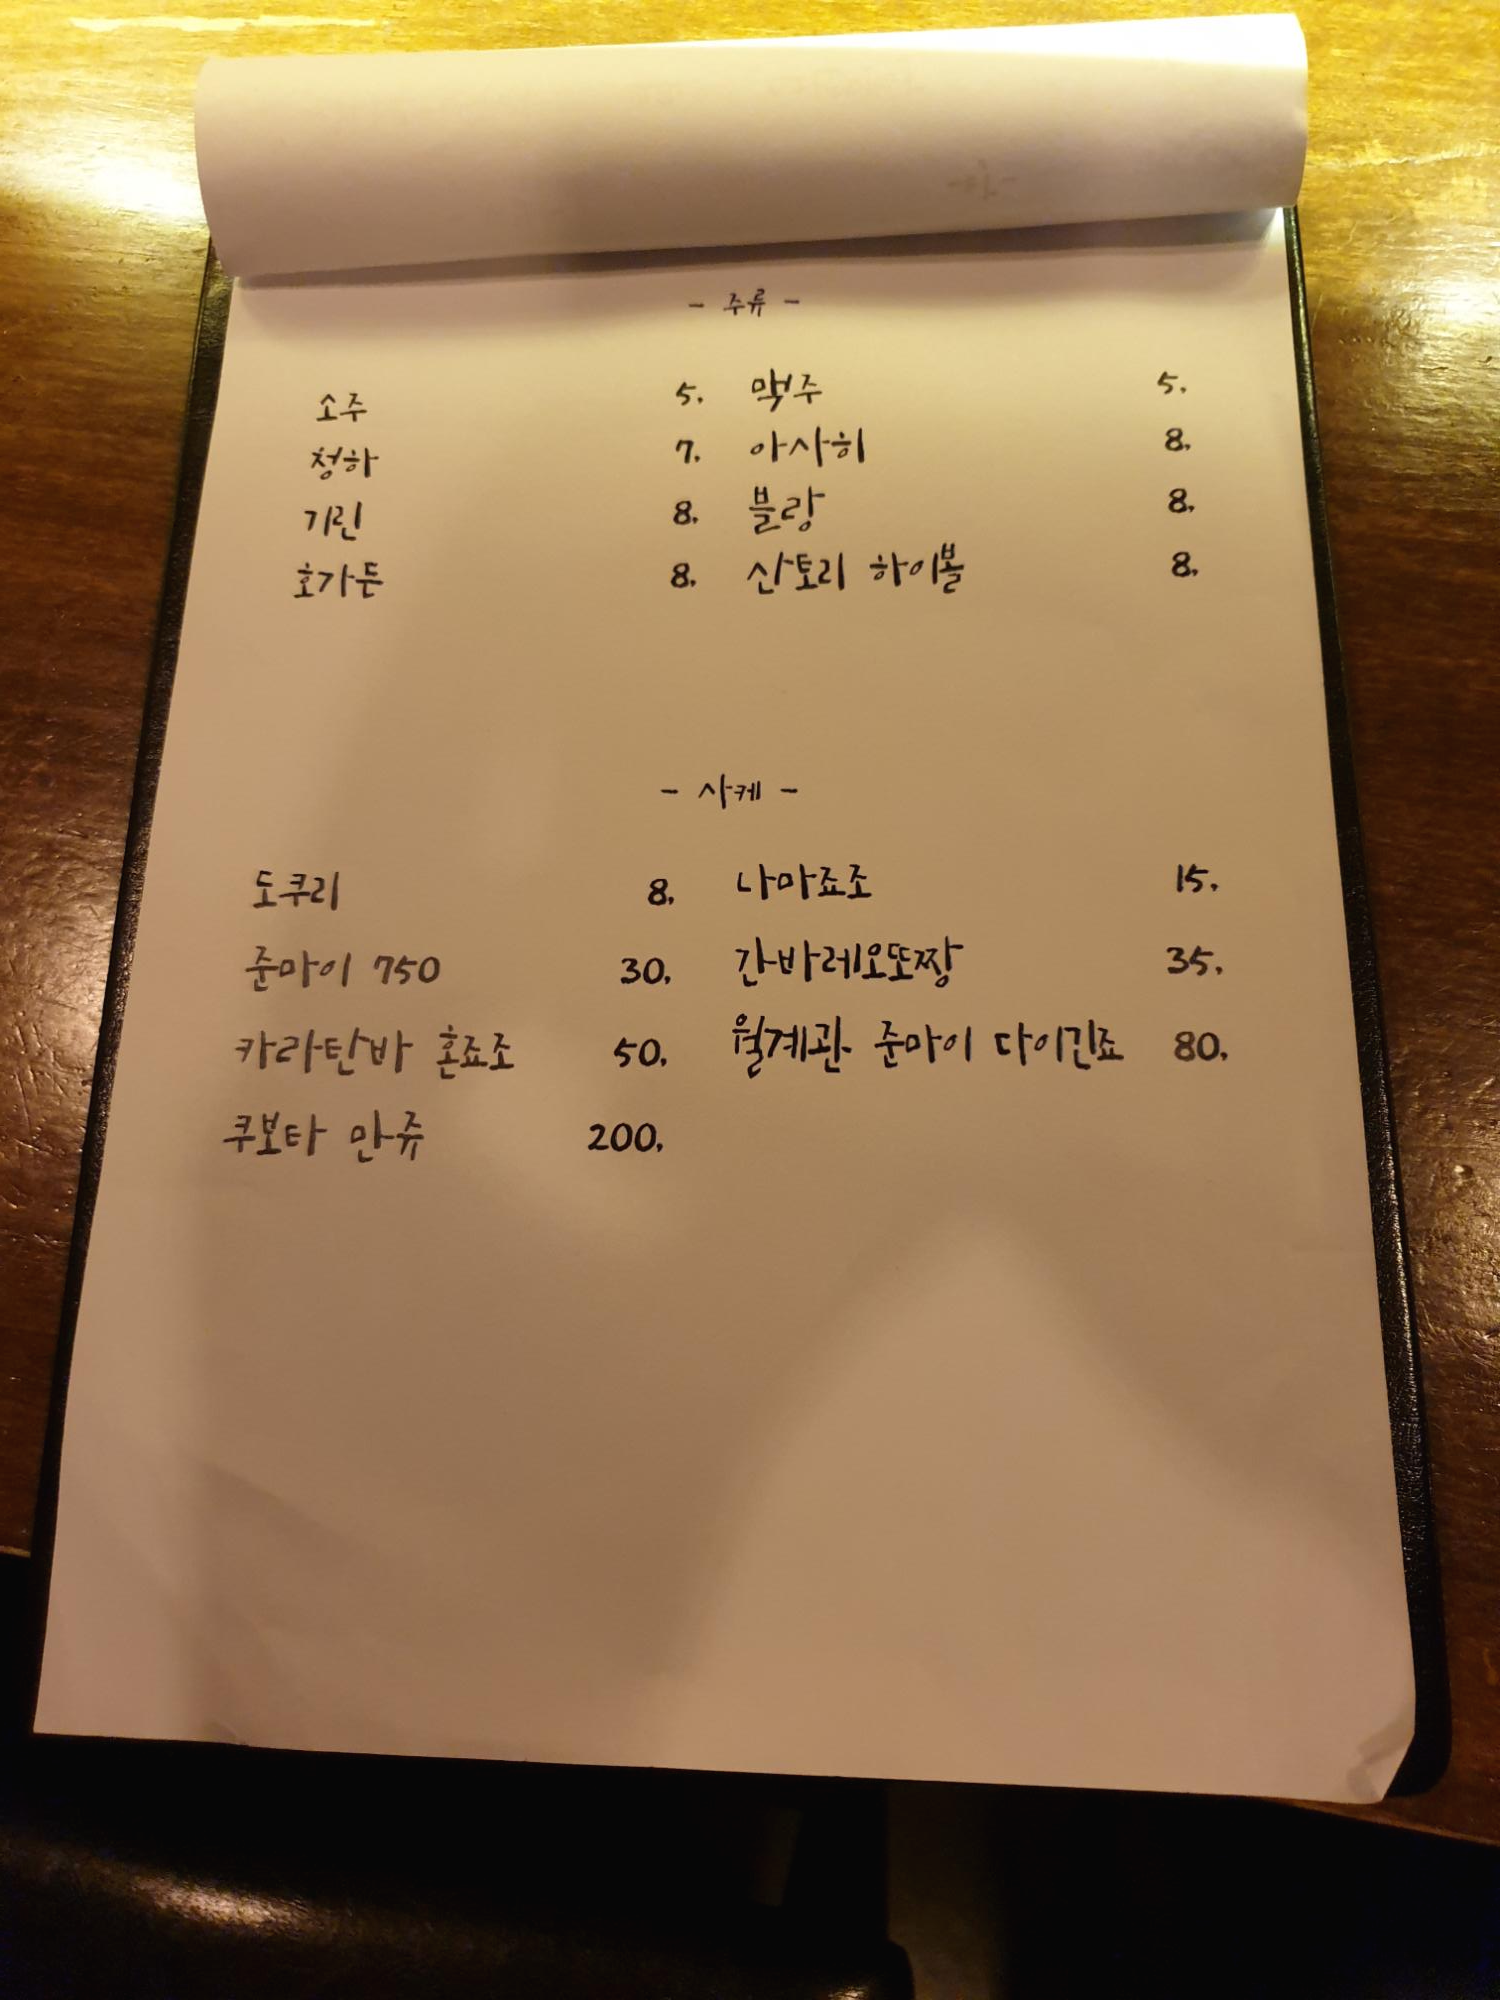 - 주류 -
소주 5. 맥주 5.
청하 7. 아사히 8.
기린 8. 블랑 8.
호가든 8. 산토리 하이볼 8.
- 사케 -
도쿠리 8. 나마죠조 15.
준마이 750 30. 간바레오또짱 35.
카라탄바 혼죠조 50. 월계관 준마이 다이긴죠 80.
쿠보타 만쥬 200.